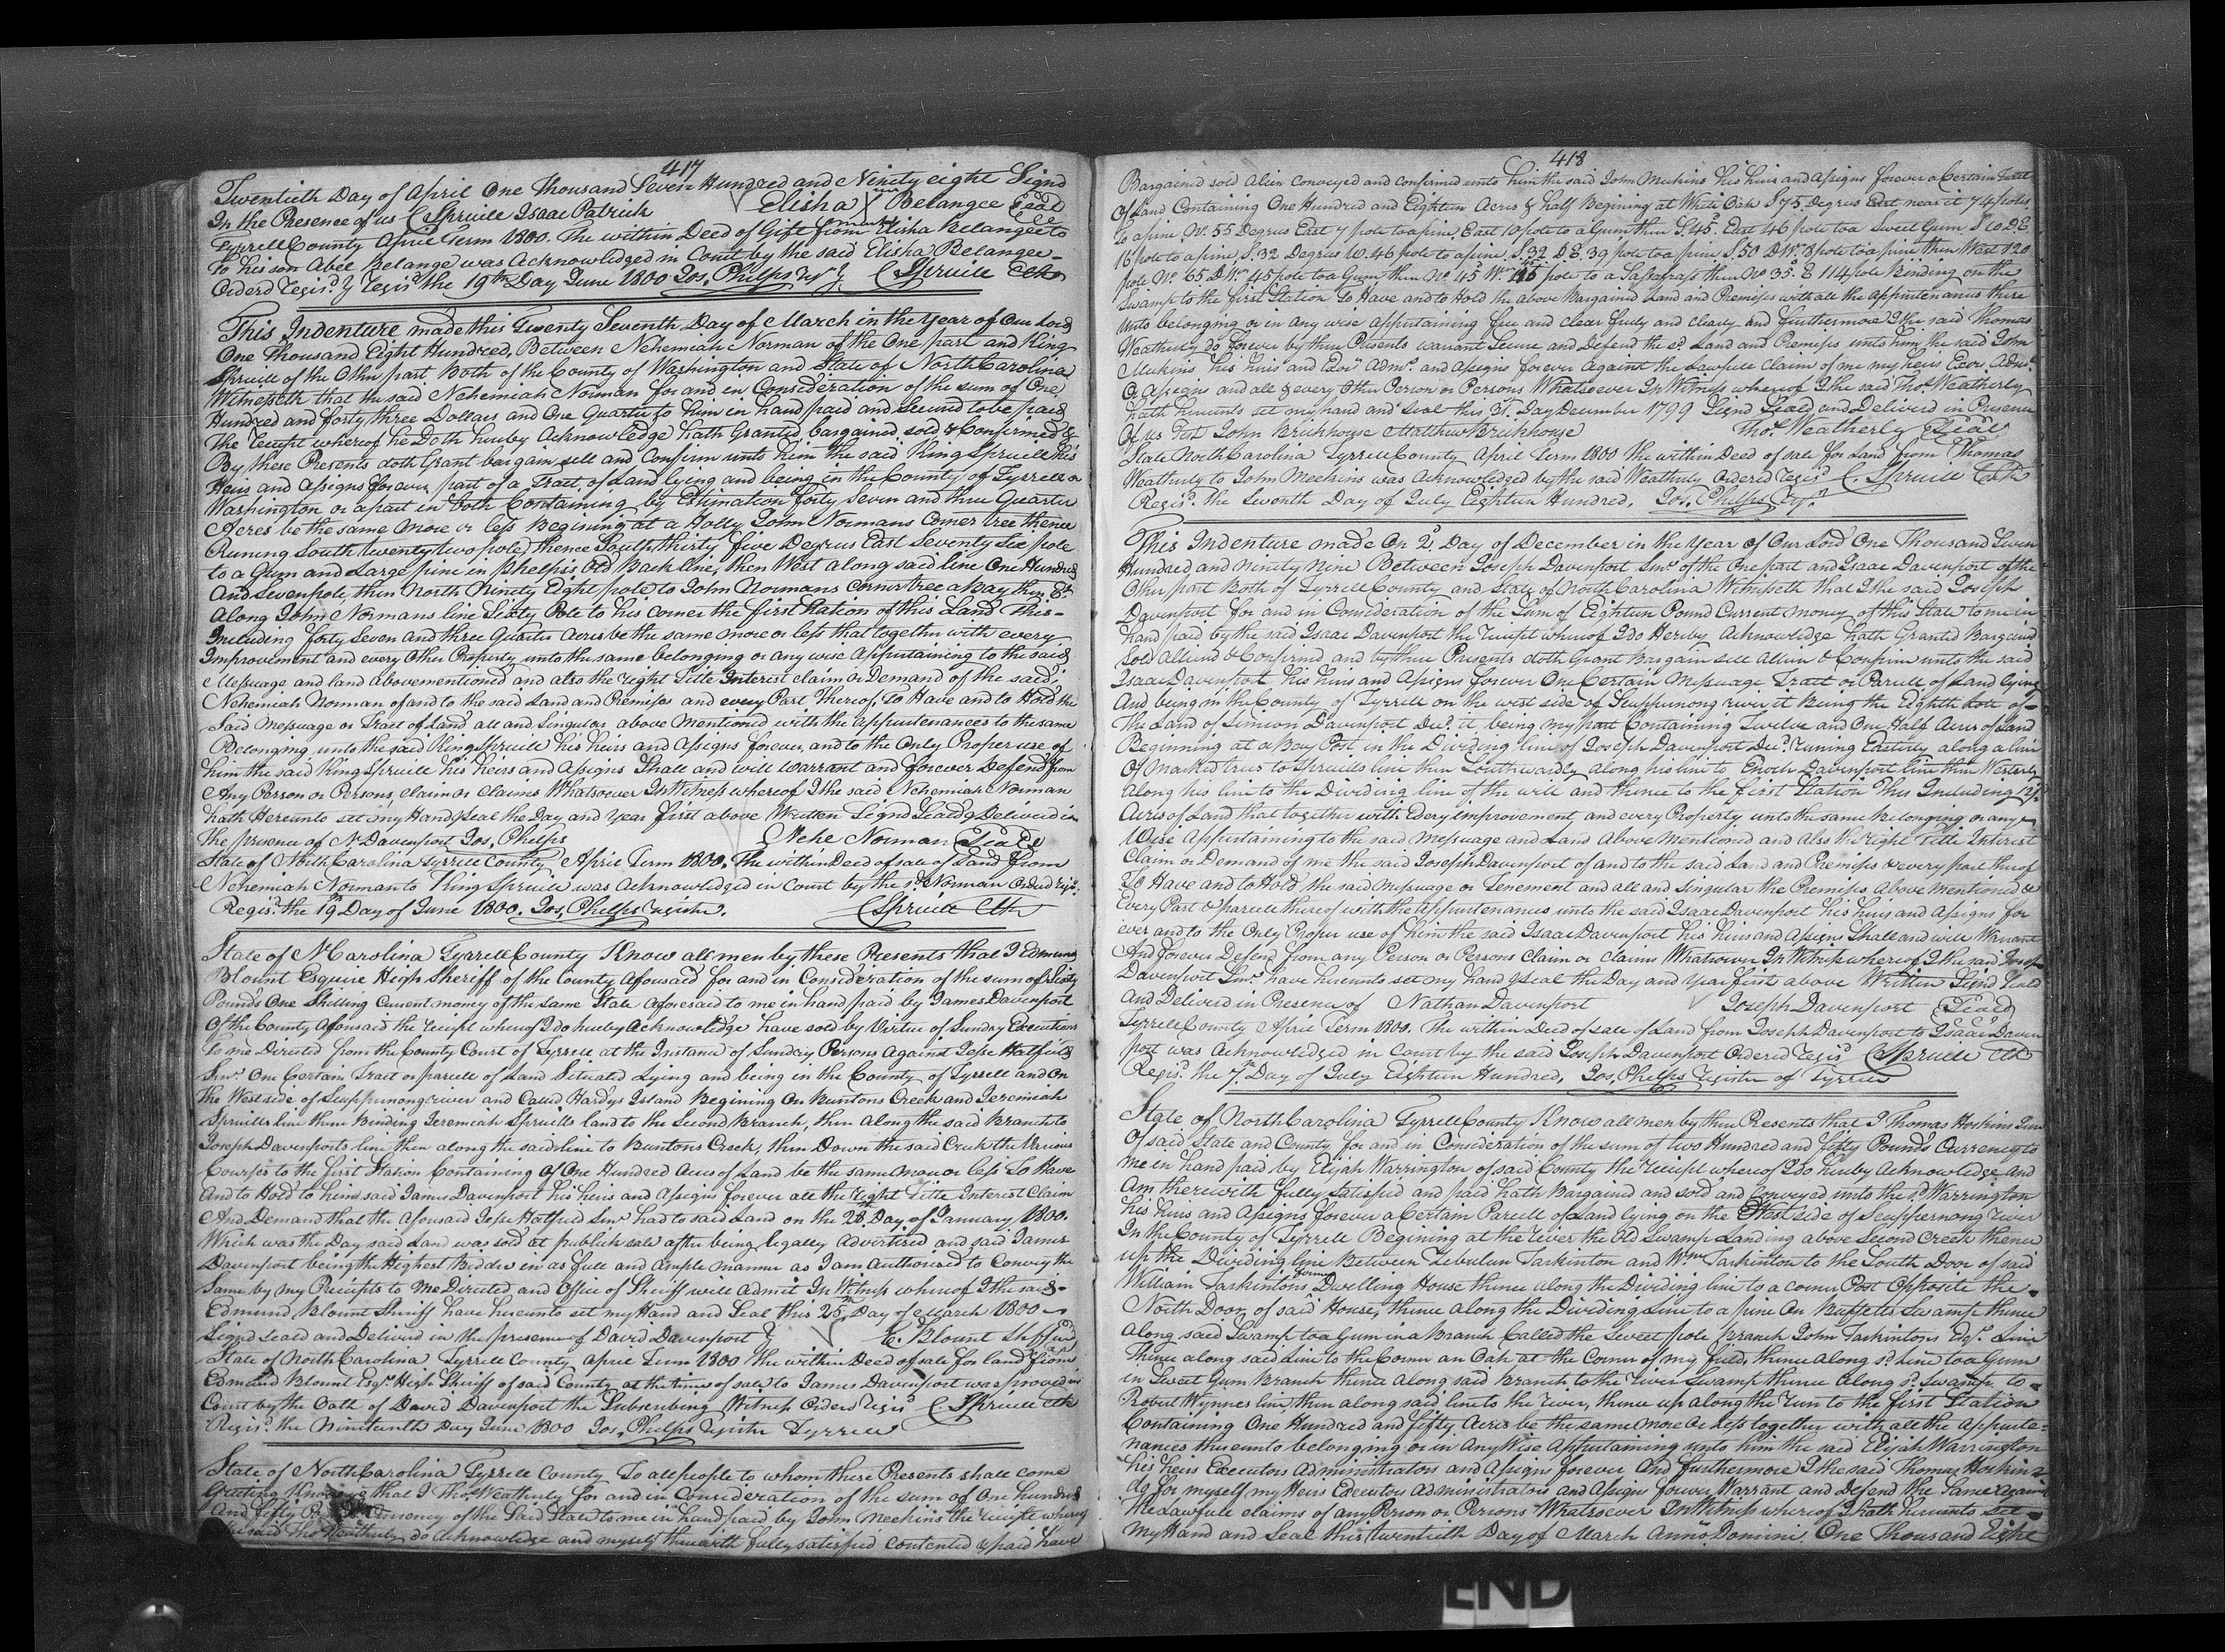 417
Twentieth Day of April One Thousand Seven Hundred and Ninety eight Signd
In the Presence of us C Spruill Isaac Patrick Elisha X Belangee Seal
his mark
Tyrrell County April Term 1800. The within Deed of Gift from Elisha Belangee to
To his son Abel Belange was Acknowledged in Court by the said Elisha Belangee
Orderd Regisd. & Regisd the 19th Day June 1800 Jos. Phelps C Spruill Clk
This Indenture made this Twenty Seventh Day of March in the Year of Our Lord
One Thousand Eight Hundred, Between Nehemiah Norman of the One part and King
Spruill of the Other part Both of the County of Washington and State of North Carolina
Witnesseth that the said Nehemiah Norman for and in Consideration of the sum of One
Hundred and forty three Dollars and One Quarter to him in hand paid and Secured to be paid
the receipt whereof he Doth hereby Acknowledge hath Granted bargained sold & Confirmed &
By these Presents doth Grant bargain sell and Confirm unto him the said King Spruill his
Heirs and Assigns forever part of a Tract of Land lying and being in the County of Tyrrell or
Washington or a part in both Containing by Estimation forty seven and three Quarter
Acres be the same more or less Begining at a Holly John Normans Corner tree thence
Runing South twenty two pole, thence South thirty five Degrees East Seventy Six pole
to a Gum and Large pine in Phelps's Old Back line, then West along said line One Hundred
And Seven pole, then North Ninety Eight pole to John Normans corner tree a Bay then Et
Along John Normans line Sixty Pole to his corner the first Station of this Land this
Including forty Seven and three Quarter Acres be the same more or less that together with every
Improvement and every Other Property unto the same belonging or any wise Appertaining to the said
Messuage and land abovementioned and also the right Title Interest claim or Demand of the said
Nehemiah Norman of and to the said Land and Premises and every Part thereof, To Have and to Hold the
Said Messuage or Tract of Land all and Singular above Mentioned with the appurtenances to the same
Belonging unto the said King Spruill his heirs and Assigns forever, and to the Only Proper use of
him the said King Spruill his heirs and Assigns Shall and will warrant and forever Defend from
Any Person or Persons, claim or claims Whatsoever In Witness whereof I the said Nehemiah Norman
hath Hereunto set my Hand & Seal the Day and Year first above Written Signd Seald & Deliverd in
the presence of N. Davenport Jos. Phelps Nehe Norman Seald
State of North Carolina Tyrrell County April Term 1800. The within Deed of sale of Land from
Nehemiah Norman to King Spruill was Acknowledged in Court by the sd. Norman Orderd regisd.
Regisd. the 19 Day of June 1800. Jos. Phelps register. C Spruill Clk
State of N Carolina Tyrrell County Know all men by these Presents that I Edmund
Blount Esquire High Sheriff of the County aforesaid for and in Consideration of the sum of Sixty
Pounds One Shilling Current money of the Same State aforesaid to me in hand paid by James Davenport
Of the County aforesaid the receipt whereof I do hereby Acknowledge have sold by Virtue of Sundry Executions
To me Directed from the County Court of Tyrrell at the Instance of Sundry Persons against Jesse Hatfield
Senr. One Certain Tract or parcell of Land Situated Lying and being in the County of Tyrrell and On
the West side of Scuppernong river and Calld Hardys Island Begining On Buntons Creek and Jeremiah
Spruills line thence Binding Jeremiah Spruills land to the Second Branch, then along the said Branch to
Joseph Davenports line then along the said line to Buntons Creek, then Down the said Creek the Various
Courses to the first Station Containing Of One Hundred Acres of Land be the same more or less To Have
And to Hold to him said James Davenport his heirs and Assigns forever all the right Title Interest Claim
And Demand that the aforesaid Jesse Hatfield Senr had to said Land on the 28th Day of January 1800.
Which was the Day said Land was sold at publick sale after being legally Advertised and said James
Davenport being the Highest Bidder in as full and ample manner as I am Authorised to Convey the
Same by my Precepts to me Directed and Office of Sheriff will Admit In Witness whereof I the said
Edmund Blount Sheriff have hereunto set my Hand and Seal this 25th Day of March 1800
Signd Seald and Deliverd in the presence of David Davenport E. Blount Shff Seal
State of North Carolina Tyrrell County April Term 1800 the within Deed of sale for land from
Edmund Blount Esqr. High Sheriff of said County at the time of sale to James Davenport was proved in
Court by the Oath of David Davenport the Subscribing Witness Orderd regisd C Spruill Clk
Regisd. the Nineteenth Day June 1800 Jos. Phelps register Tyrrell
State of North Carolina Tyrrell County To all people to whom these Presents shall come
Greeting Know ye that I Thos. Weatherly for and in Consideration of the sum of One hundred
And fifty money of the Said State to me in hand paid by John Meekins the receipt whereof
said Thos Weatherly do Acknowledge and myself therewith fully satisfied contented & paid have
418
Bargained sold Alien Conveyed and confirmed unto him the said John Meekins his heirs and Assigns forever a Certain Tract
Of Land Containing One Hundred and Eighteen Acres & half Begining at White Oak S 75. Degrees East near it 74 poles
to a pine No. 55 Degrees East 7 pole to a pine, East 10 pole to a Gum then S. 45. East 46 pole to a Sweet Gum S 10 D. E.
16 pole to a pine S. 32 Degrees W. 46 pole to a pine S. 32 D. E. 39 pole to a pine S. 50 D W. 8 pole to a pine then West 120
pole No. 65. D. Wt. 45 pole to a Gum then No 45 Wt. pole to a Sassafrass then No 35. E 114 pole Binding on the
Swamp to the first Station To Have and to Hold the above Bargained Land and Premises with all the Appurtenances there
unto belonging or in any wise Appertaining free and clear freely and clearly and furthermore I the said Thomas
Weatherly do forever by these Presents warrant Secure and Defend the sd Land and Premises unto him the said John
Meekins his heirs and Exors Admrs. and Assigns forever Against the Lawfull Claim of me my heirs Exors. Admrs.
Or Assigns and all & every Other Person or Persons Whatsoever In Witness whereof I the said Thos. Weatherly
hath hereunto set my hand and Seal this 31. Day December 1799 Signd Seald and Deliverd in Presence
Of us Test John Brickhouse Matthew Brickhouse Thos. Weatherly Seal
State North Carolina Tyrrell County April Term 1800 the within Deed of sale for Land from Thomas
Weatherly to John Meekins was Acknowledged by the said Weatherly Ordered Regisd C. Spruill Clk
Regisd. the Seventh Day of July Eighteen Hundred. Jos. Phelps Regr.
This Indenture made On 2d. Day of December in the Year of Our Lord One Thousand Seven
Hundred and Ninety Nine Between Joseph Davenport Senr. of the One part and Isaac Davenport of the
Other part Both of Tyrrell County and State of North Carolina Witnesseth that I the said Joseph
Davenport for and in Consideration of the Sum of Eighteen Pound Current money of this State to me in
hand paid by the said Isaac Davenport the receipt whereof I do Hereby Acknowledge hath Granted Bargaind
Sold Aliend & Confirmd and by these Presents doth Grant Bargain sell Alien & Confirm unto the said
Isaac Davenport his heirs and Assigns forever One Certain Messuage Tract or Parcell of Land lying
And being in the County of Tyrrell on the west side of Scuppernong river it Being the Eighth Lott of
the Land of Simeon Davenport Decd. it being my part Containing Twelve and One Half Acres of Land
Beginning at a Bay Post in the Dividing line of Joseph Davenport Decd. runing Easterly along a line
Of Marked trees to Spruills line then Southwardly along his line to Enoch Davenport line then Westerly
Along his line to the Dividing line of the will and thence to the first Station this Including 12½
Acres of Land that together with Every improvement and every Property unto the same belonging or any
Wise Appertaining to the said Messuage and Land Above Mentioned and Also the right Title Interest
Claim or Demand of me the said Joseph Davenport of and to the said Land and Premises & every part thereof
To Have and to Hold the said Messuage or Tenement and all and Singular the Premises Above mentioned &
Every Part & parcell thereof with the Appurtenances unto the said Isaac Davenport his heirs and Assigns for
ever and to the Only Proper use of him the said Isaac Davenport his heirs and Assigns Shall and will Warrant
And forever Defend from any Person or Persons Claim or claims Whatsoever In Witness whereof I the said Joseph
Davenport Senr. have hereunto set my hand & Seal the Day and Year first above Written Signd Seald
and Deliverd in Presence of Nathan Davenport Joseph Davenport Seald
Tyrrell County April Term 1800. The within Deed of sale of Land from Joseph Davenport to Isaac Daven
port was Acknowledged in Court by the said Joseph Davenport Ordered regisd C Spruill Clk
Regisd. the 7th Day of July Eighteen Hundred, Jos. Phelps register of Tyrrell
State of North Carolina Tyrrell County Know all men by these Presents that I Thomas Hoskins
Of said State and County for and in Consideration of the sum of two Hundred and fifty Pounds Currency to
me in hand paid by Elijah Warrington of said County the receipt whereof I do hereby Acknowledge and
Am therewith fully Satisfied and paid hath Bargained and sold and Conveyed unto the sd Warrington
his heirs and Assigns forever a Certain Parcell of Land lying on the West side of Scuppernong river
In the County of Tyrrell Begining at the river the Old Swamp Landing above Second Creek thence
up the Dividing line Between Zebulun Tarkinton and Wm. Tarkinton to the South Door of said
William Tarkintons Dwelling House thence along the Dividing line to a corner Post Opposite the
North Door of said House, thence along the Dividing Line to a pine On Swamp thence
along said Swamp to a Gum in a Branch Called the Sweet pole branch John Tarkintons Esqr. Line
thence along said Line to the Corner an Oak at the Corner of my field, thence along sd. line to a Gum
in Sweet Gum Branch thence along said branch to the river Swamp thence along sd. Swamp to
Robert Wynnes line, then along said line to the river, thence up along the run to the first Station
Containing One Hundred and fifty Acres be the same more or less together with all the appurte=
nances thereunto belonging or in Any Wise Appertaining unto him the said Elijah Warrington
his heirs Executors Administrators and Assigns forever and furthermore I the said Thomas Hoskins
do for myself my Heirs Executors Administrators and Assigns forever Warrant and Defend the Same against
the Lawfull claims of any Person or Persons Whatsoever In Witness whereof I hath hereunto Set
My Hand and Seal this twentieth Day of March Anno Domini One Thousand Eight
END